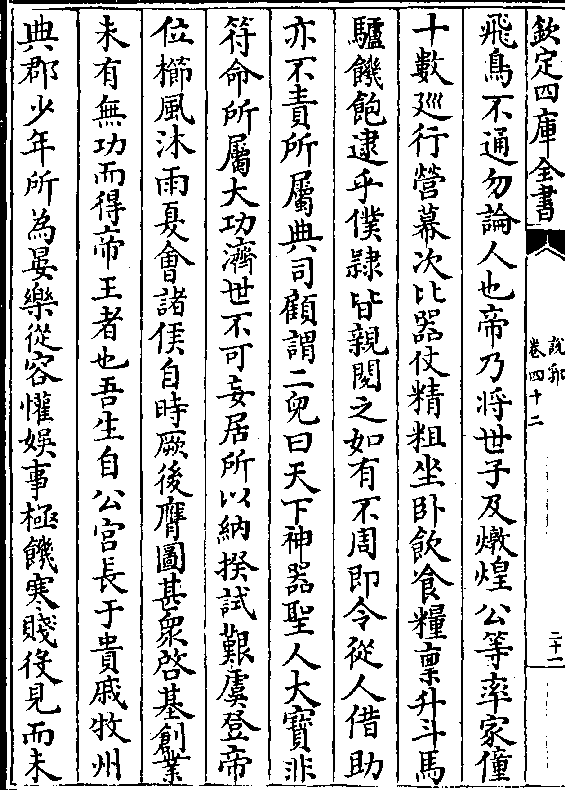 欽定四庫全書
說郛
卷四十二
二十二
飛鳥不通勿論人也帝乃將世子及燉煌公等率家僮
十數廵行營幕次比器仗精粗坐卧飲食糧禀升斗馬
驢饑飽逮乎僕隸皆親閱之如有不周即令從人借助
亦不責所屬典司顧謂二兒曰天下神器聖人大寶非
符命所屬大功濟世不可妄居所以納揆試艱虞登帝
位櫛風沐雨夏會諸侯自時厥後膺圖甚衆啓基創業
未有無功而得帝王者也吾生自公宫長于貴戚牧州
典郡少年所為晏樂從容懽娛事極饑寒賤役見而未